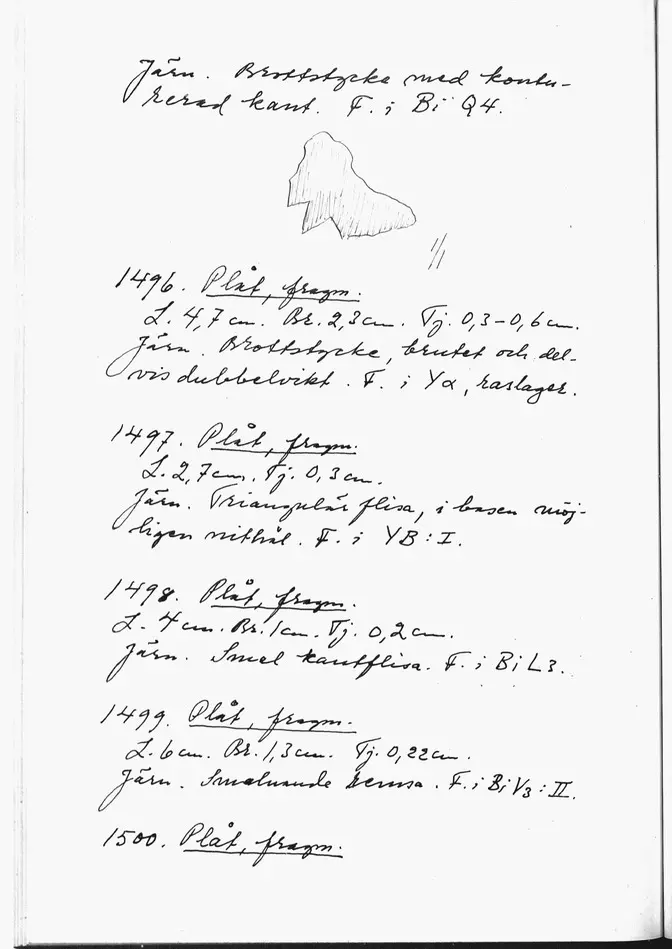 Järn. Brottstycke med kontu-
rerad kant. F. i Bi Q4.
1/1
1496. Plåt, fragm.
L. 4,7 cm. Br. 2,3 cm. Tj. 0,3-0,6 cm.
Järn. Brottstycke, brutet och del-
vis dubbelvikt. F. i Yα, raslager.
1497. Plåt, fragm.
L. 2,7 cm. Tj. 0,3 cm.
Järn. Triangulär flisa, i basen möj-
ligen nithål. F. i YB:I.
1498. Plåt, fragm.
L. 4 cm. Br. 1 cm. Tj. 0,2 cm.
Järn. Smal kantflisa. F. i Bi L3.
1499. Plåt, fragm.
L. 6 cm. Br. 1,3 cm. Tj. 0,22 cm.
Järn. Smalnande remsa. F. i Bi V3:II.
1500. Plåt, fragm.